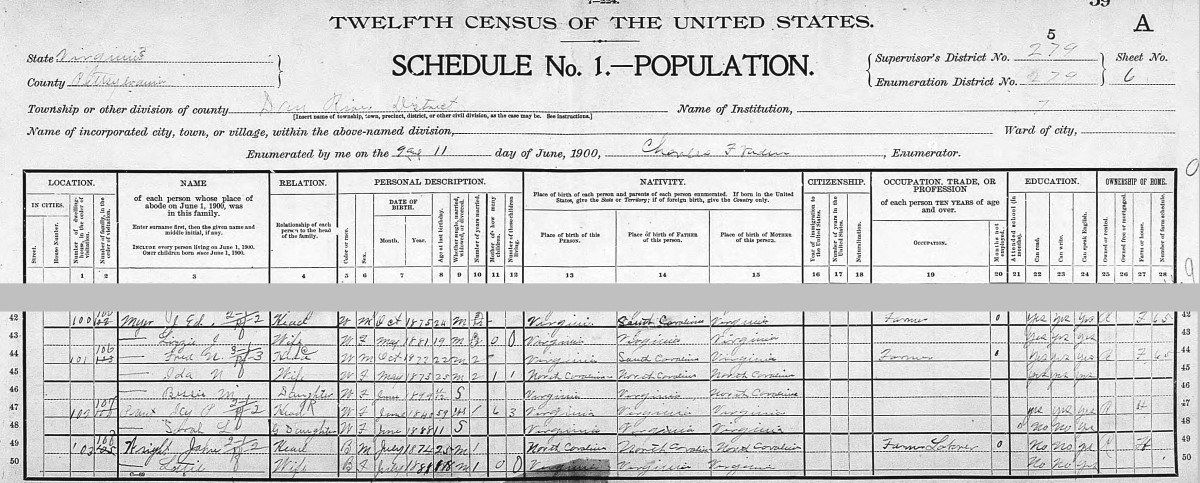 TWELFTH CENSUS OF THE UNITED STATES.
39
A
State Virginia
SCHEDULE No. 1.—POPULATION.
5
Supervisor's District No. 279
Sheet No.
County
Enumeration District No. 279
6
Township or other division of county Dan River District
[Insert name of township, town, precinct, district, or other civil division, as the case may be. See instructions.]
Name of Institution,
Name of incorporated city, town, or village, within the above-named division,
Ward of city,
Enumerated by me on the 11 day of June, 1900, Charles F, Enumerator.
LOCATION. NAME RELATION. PERSONAL DESCRIPTION. NATIVITY. CITIZENSHIP. OCCUPATION, TRADE, OR PROFESSION EDUCATION. OWNERSHIP OF HOME.
IN CITIES.
Street.
House Number.
Number of dwelling-house, in the order of visitation.
Number of family, in the order of visitation.
of each person whose place of abode on June 1, 1900, was in this family.
Enter surname first, then the given name and middle initial, if any.
INCLUDE every person living on June 1, 1900.
OMIT children born since June 1, 1900.
Relationship of each person to the head of the family.
Color or race.
Sex.
DATE OF BIRTH.
Month. Year.
Age at last birthday.
Whether single, married, widowed, or divorced.
Number of years married.
Mother of how many children.
Number of these children living.
Place of birth of each person and parents of each person enumerated. If born in the United States, give the State or Territory; if of foreign birth, give the Country only.
Place of birth of this PERSON.
Place of birth of FATHER of this person.
Place of birth of MOTHER of this person.
Year of immigration to the United States.
Number of years in the United States.
Naturalization.
of each person TEN YEARS of age and over.
OCCUPATION.
Months not employed.
Attended school (in months).
Can read.
Can write.
Can speak English.
Owned or rented.
Owned free or mortgaged.
Farm or house.
Number of farm schedule.
1 2 3 4 5 6 7 8 9 10 11 12 13 14 15 16 17 18 19 20 21 22 23 24 25 26 27 28
42 100 J Ed Head W M Oct 1875 24 M Virginia South Carolina Virginia Farmer yes yes yes R F 65 42
43 Wife W F May 1881 19 M 0 0 Virginia Virginia Virginia yes yes yes 43
44 101 106 Head W M Oct 1877 22 M 2 Virginia South Carolina Virginia Farmer yes yes yes R F 65 44
45 Ida N Wife W F May 1875 25 M 2 1 1 North Carolina North Carolina North Carolina yes yes yes 45
46 Bessie M Daughter W F June 1899 S Virginia Virginia North Carolina 46
47 102 107 Head W F June 1840 59 1 6 3 Virginia Virginia Virginia yes yes yes R H 47
48 Sarah L G Daughter W F June 1888 11 S Virginia Virginia Virginia No No yes 48
49 103 108 Wright Head B M July 1874 25 M 1 North Carolina North Carolina North Carolina Farm Laborer No No yes R H 49
50 Lottie Wife B F July 1881 18 M 1 0 0 Virginia Virginia Virginia No No yes 50